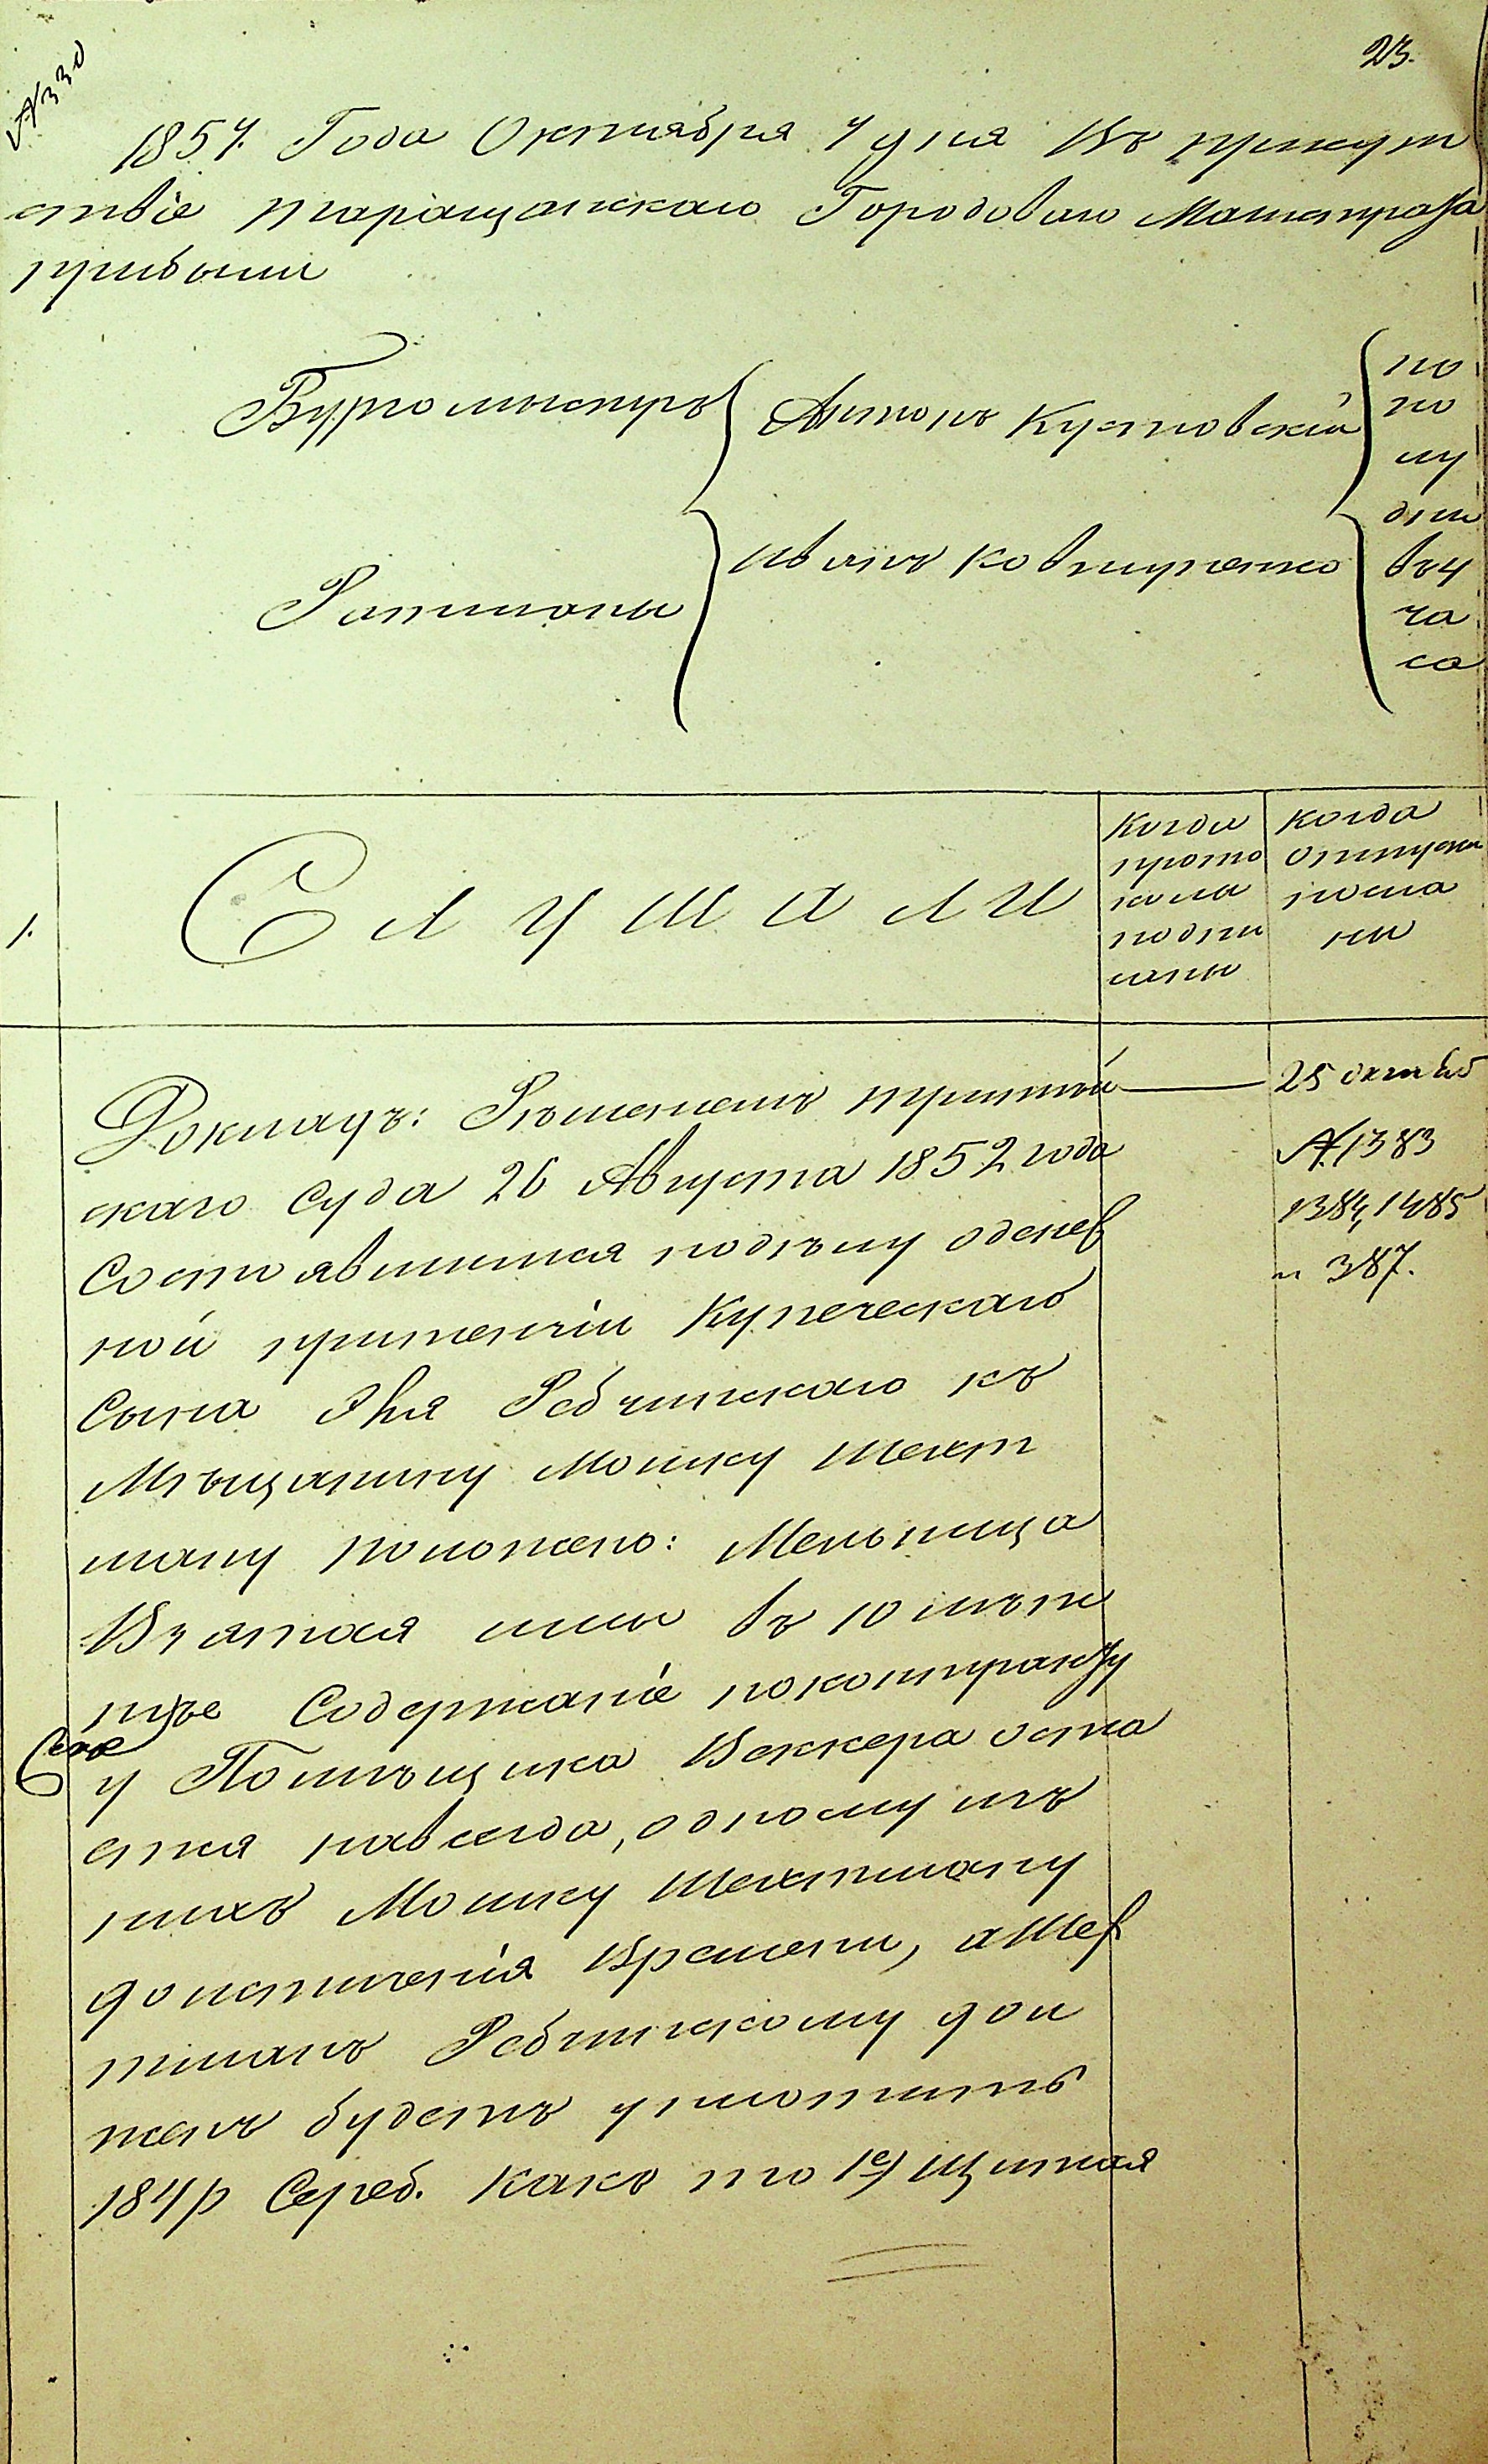 23.
№ 330
1854. Года Октября 4 дня Въ присут
ствіе таращанскаго Городоваго Магистрата
прибыли
Бургомистръ
Антонъ Кустовскій
Ратманы
Иванъ Ковтуненко
по
по
лу
дни
въ 4
ча
са
1.
Слушали
Когда
прото
кола
подпи
саны
когда
отпуски
посла
ны
Докладъ: Рѣшеніемъ третей
скаго Суда 26 Августа 1852 года
Состоявшимся подѣлу оденеж
ной претензіи Купеческаго
Сына Ребчинскаго къ
Мѣщанину Мошку Шехт
ману положено: Мельница
Взятая ими въ 10 лѣтн
нѣе Содержаніе поконтракту
у Помѣщика Веккера оста
ется навсегда, одному изъ
нихъ Мошку Шехтману
доистеченія Времени, а Шех
тманъ Ребчинскому дол
женъ будетъ уплотить
184 р Сереб. какъ то 1е) щитая
25 октяб
№ 1383
1384, 1485
и 387.